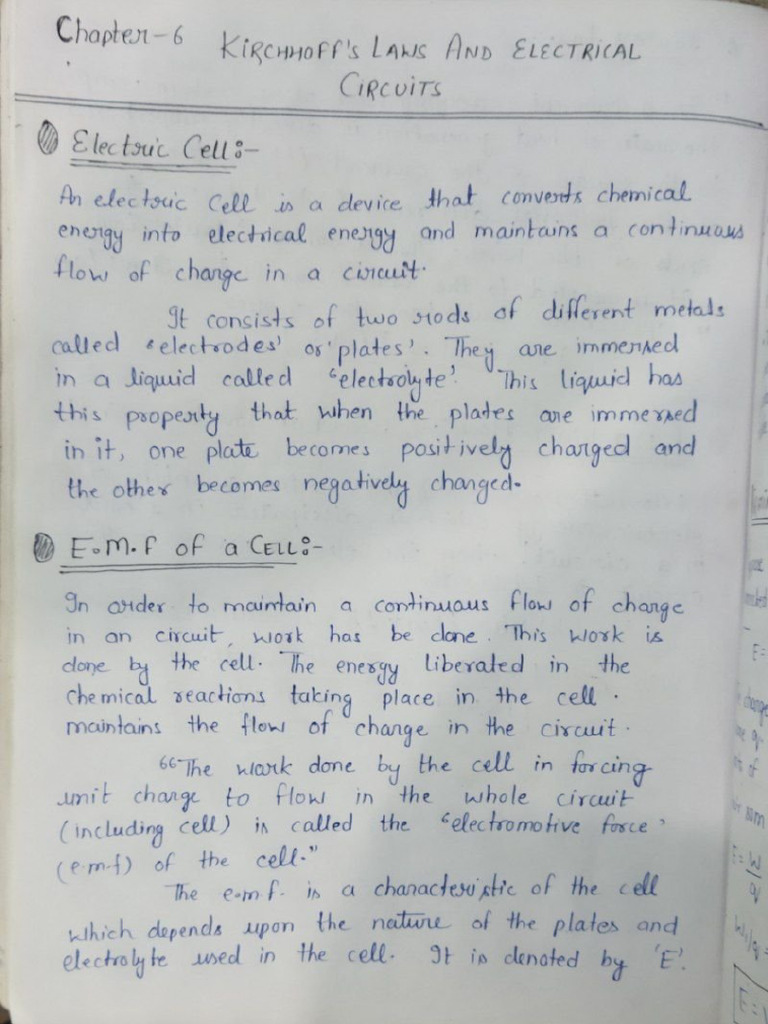 Chapter-6 KIRCHHOFF'S LAWS AND ELECTRICAL
CIRCUITS
Electric Cell:-
An electric cell is a device that converts chemical
energy into electrical energy and maintains a continuous
flow of charge in a circuit.
It consists of two rods of different metals
called 'electrodes' or 'plates'. They are immersed
in a liquid called 'electrolyte'. This liquid has
this property that when the plates are immersed
in it, one plate becomes positively charged and
the other becomes negatively charged.
E.M.F OF a CELL:-
In order to maintain a continuous flow of charge
in an circuit, work has be done. This work is
done by the cell. The energy liberated in the
chemical reactions taking place in the cell.
maintains the flow of charge in the circuit.
"The work done by the cell in forcing
unit charge to flow in the whole circuit
(including cell) is called the 'electromotive force'
(e.m.f) of the cell."
The e.m.f. is a characteristic of the cell
which depends upon the nature of the plates and
electrolyte used in the cell. It is denoted by 'E'.